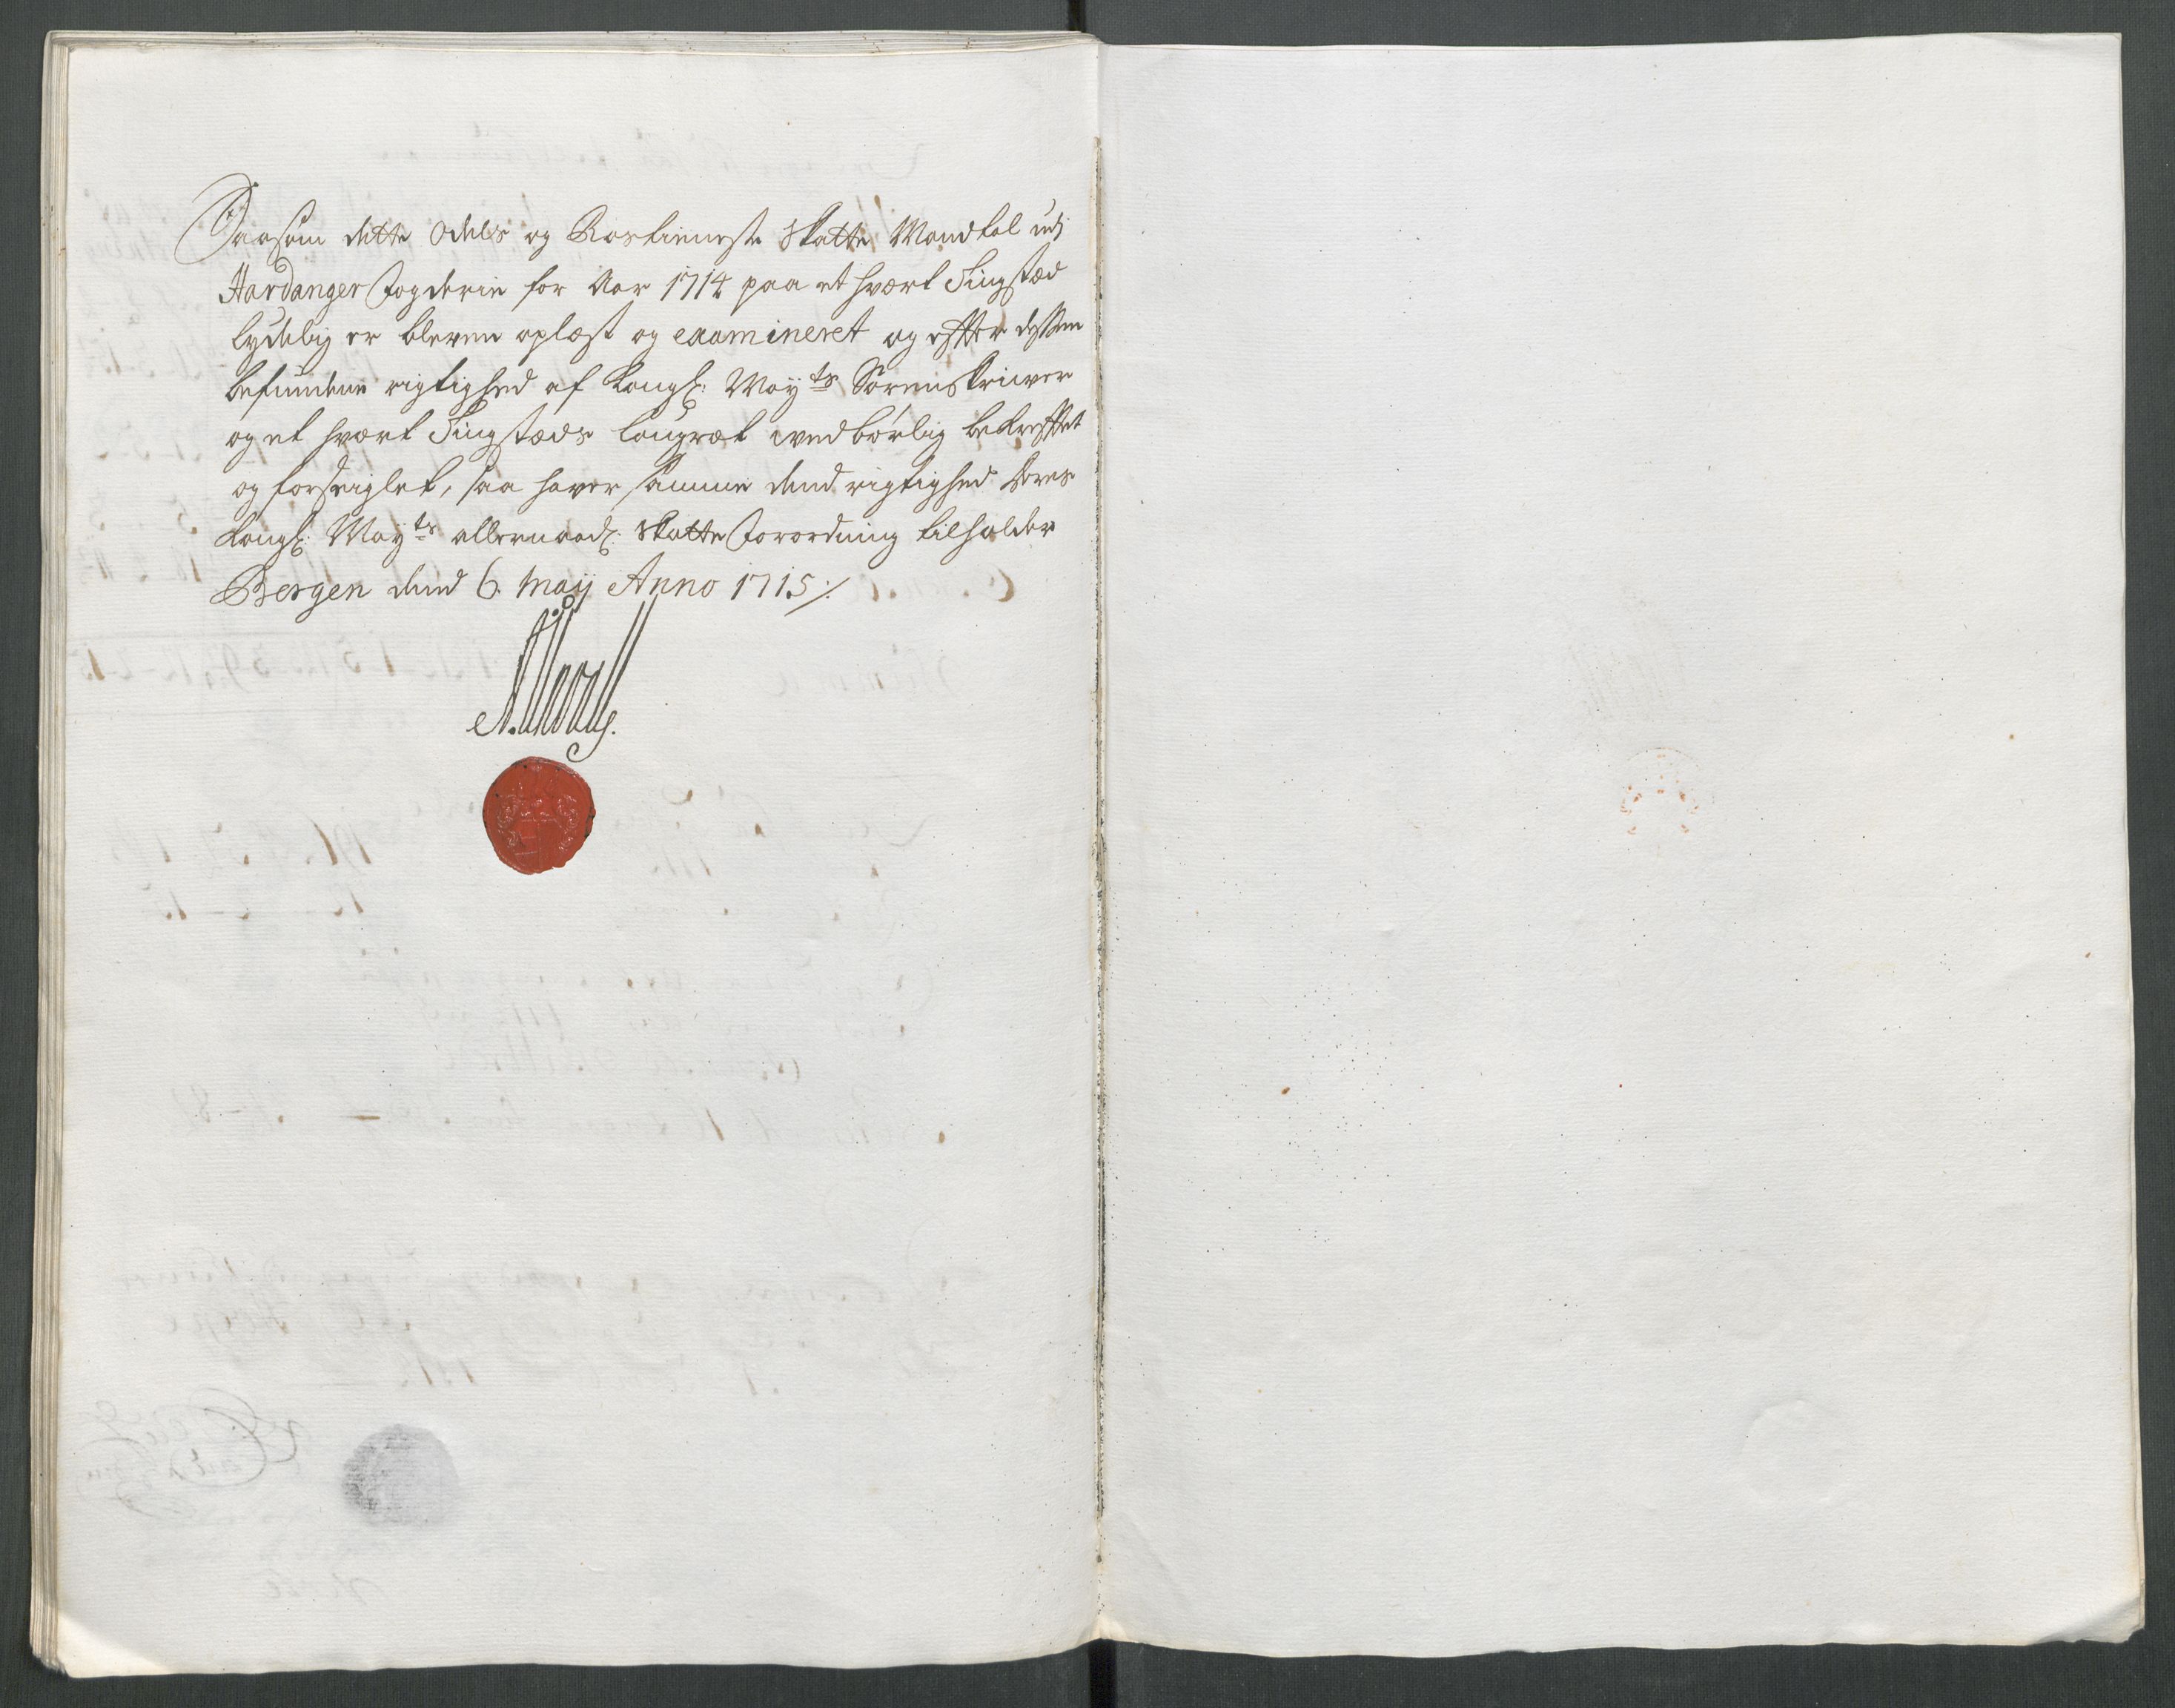 Saasom dette Odels og Rostieneste Skatte Mandtal udj
Hardanger Fogderie for Aar 1714 paa et hvært Tingstæd
lydelig er bleven oplæst og examineret og efter dessen
befundene rigtighed af Kongl: Mayts Sorenskriwer
og et hvært Tingstæds laugræt wedbørlig bekreftet
og forseiglet, saa haver samme dend rigtighed som
Kongl: Mayts allernaad: Skatte Forordning tilholder
Bergen dend 6. Maÿ Anno 1715 ./.